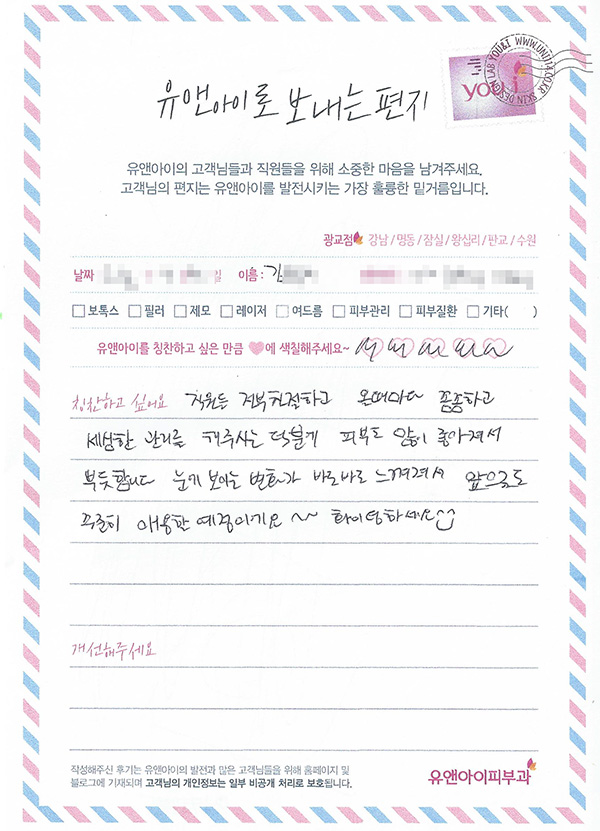 유앤아이로 보내는 편지
SKIN DESIGN LAB YOU&I WWW.UNI114.CO.KR
you.i
유앤아이의 고객님들과 직원들을 위해 소중한 마음을 남겨주세요.
고객님의 편지는 유앤아이를 발전시키는 가장 훌륭한 밑거름입니다.
광교점 강남/명동/잠실/왕십리/판교/수원
날짜 일 이름 : 김
보톡스 필러 제모 레이저 여드름 피부관리 피부질환 기타( )
유앤아이를 칭찬하고 싶은 만큼 ♥에 색칠해주세요~
칭찬하고 싶어요 직원분 전부 친절하고 올때마다 꼼꼼하고
세심한 관리를 해주시는 덕분에 피부도 많이 좋아져서
뿌듯합니다 눈에 보이는 변화가 바로바로 느껴져서 앞으로도
꾸준히 애용할 예정이게요 ~~ 화이팅하세요
개선해주세요
작성해주신 후기는 유앤아이의 발전과 많은 고객님들을 위해 홈페이지 및
블로그에 기재되며 고객님의 개인정보는 일부 비공개 처리로 보호됩니다.
유앤아이피부과